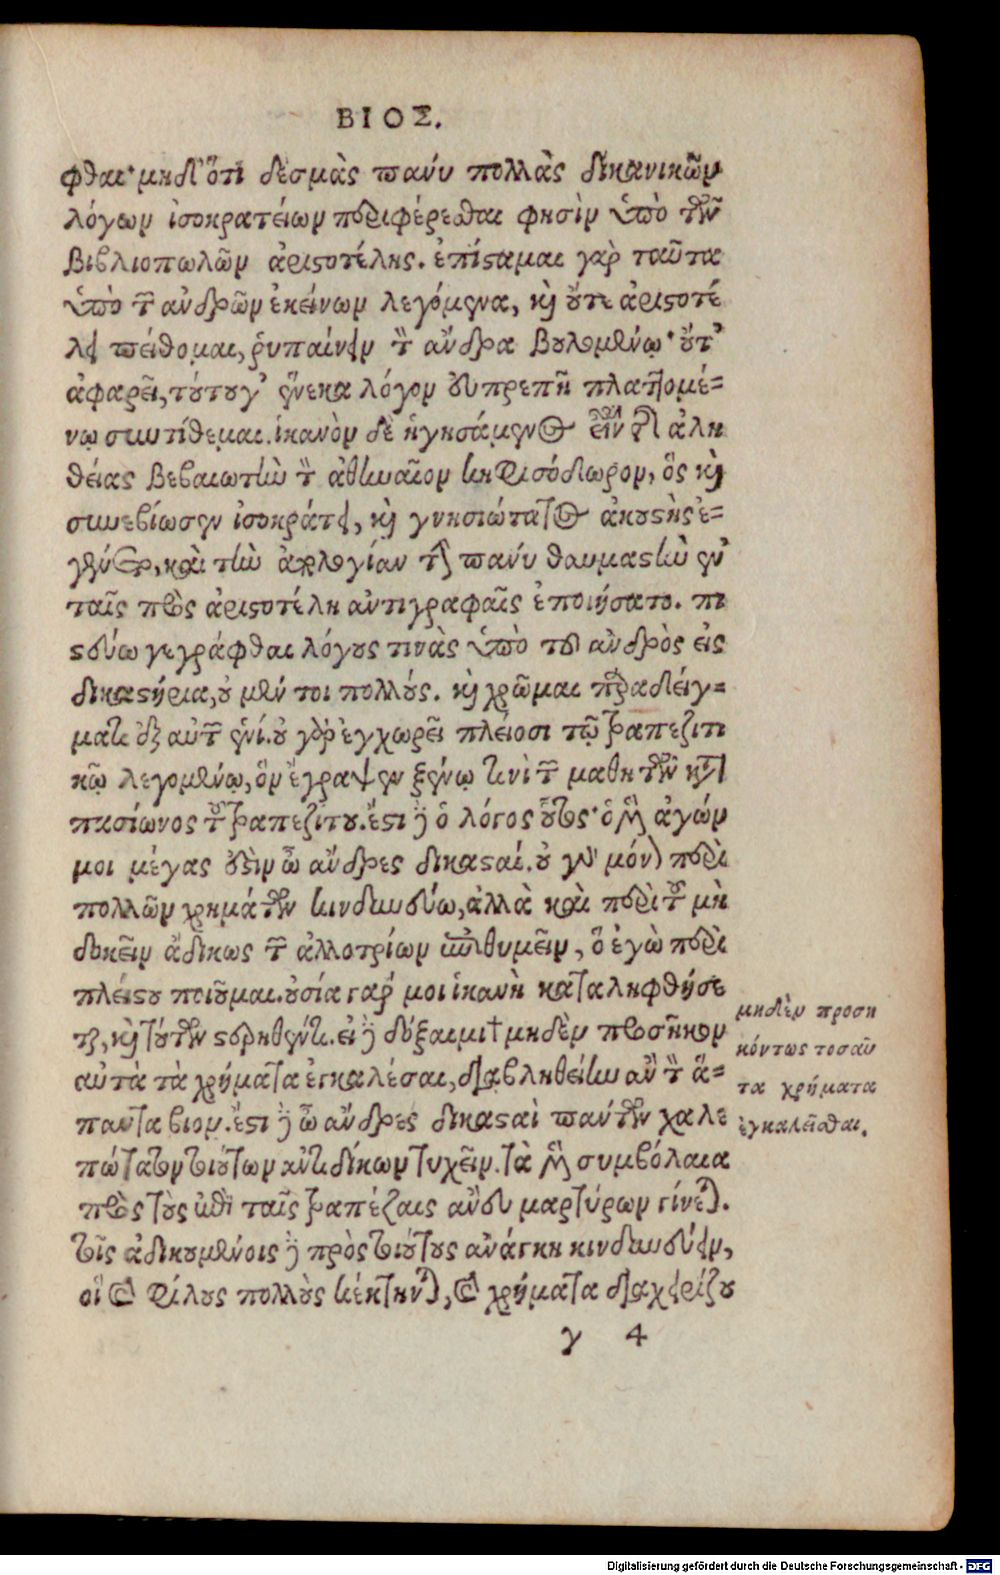 ΒΙΟΣ.
φθαι· μηδ' ὅτι δεσμὰς πάνυ πολλὰς δικανικῶν
λόγων ἰσοκρατείων περιφέρεσθαι φησὶν ὑπὸ τῶν
βιβλιοπωλῶν ἀριστοτέλης. ἐπίσταμαι γὰρ ταῦτα
ὑπὸ τῶν ἀνδρῶν ἐκείνων λεγόμενα, καὶ οὔτε ἀριστοτέ
λει πείθομαι, ῥυπαίνειν τὸν ἄνδρα βουλομένῳ· οὔτ'
ἀφαρεῖ, τούτου γ' ἕνεκα λόγον εὐπρεπῆ πλαττομέ-
νῳ συντίθεμαι. ἱκανὸν δὲ ἡγησάμενος εἶναι τῆς ἀλη
θείας βεβαιωτὴν τὸν ἀθηναῖον κηφισόδωρον, ὃς καὶ
συνεβίωσεν ἰσοκράτει, καὶ γνησιώτατος ἀκουστὴς ἐ-
γένετο, καὶ τὴν ἀπολογίαν τὴν πάνυ θαυμαστὴν ἐν
ταῖς πρὸς ἀριστοτέλη ἀντιγραφαῖς ἐποιήσατο. πι
στεύω γεγράφθαι λόγους τινὰς ὑπὸ τοῦ ἀνδρὸς εἰς
δικαστήρια, οὐ μέν τοι πολλούς. καὶ χρῶμαι παραδείγ-
ματι ἐξ αὐτῶν ἑνί. οὐ γὰρ ἐγχωρεῖ πλείοσι τῷ τραπεζιτι
κῷ λεγομένῳ, ὃν ἔγραψεν ξένῳ τινὶ τῶν μαθητῶν κατὰ
πασίωνος τοῦ τραπεζίτου. ἔστι δὲ ὁ λόγος οὗτος· ὁ μὲν ἀγών
μοι μέγας ἐστὶν ὦ ἄνδρες δικασταί. οὐ γὰρ μόνον περὶ
πολλῶν χρημάτων κινδυνεύω, ἀλλὰ καὶ περὶ τοῦ μὴ
δοκεῖν ἀδίκως τῶν ἀλλοτρίων ἐπιθυμεῖν, ὃ ἐγὼ περὶ
πλείστου ποιοῦμαι. οὐσία γάρ μοι ἱκανὴ καταληφθήσε
ται, καὶ τούτων στερηθέντι. εἰ δὲ δόξαιμι† μηδὲν προσῆκον
αὐτὰ τὰ χρήματα ἐγκαλέσαι, διαβληθείην ἂν τὸν ἅ-
παντα βίον. ἔστι δὲ ὦ ἄνδρες δικασταὶ πάντων χαλε
πώτατον τοιούτων ἀντιδίκων τυχεῖν. τὰ μὲν συμβόλαια
πρὸς τοὺς ἐπὶ ταῖς τραπέζαις ἄνευ μαρτύρων γίνεται.
τοῖς ἀδικουμένοις δὲ πρὸς τοιούτους ἀνάγκη κινδυνεύειν,
οἳ καὶ φίλους πολλοὺς κέκτηνται, καὶ χρήματα διαχειρίζου
μηδὲν προση
κόντως τοσαῦ
τα χρήματα
ἐγκαλεῖσθαι.
γ 4
Digitalisierung gefördert durch die Deutsche Forschungsgemeinschaft - DFG